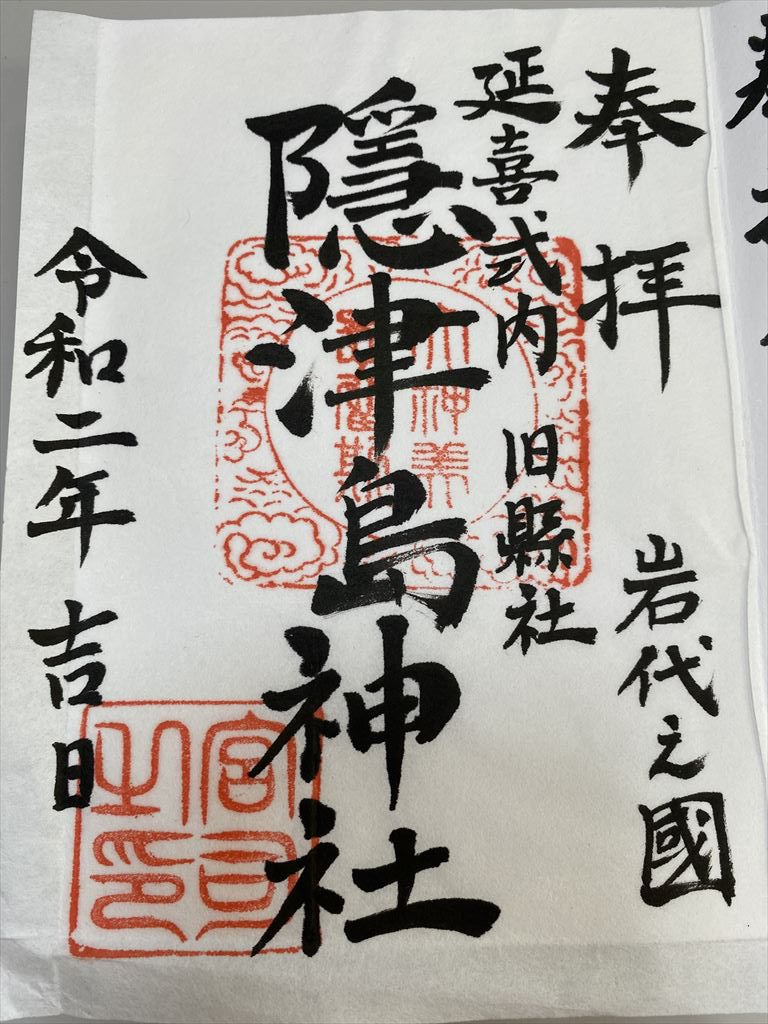 奉拝
岩代之國
延喜式内 旧縣社
隱津島神社
令和二年 吉日
宮司
之印